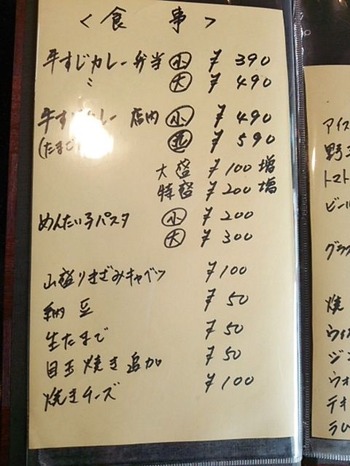 <食事>
牛すじカレー弁当 小 ¥390
〃 大 ¥490
牛すじカレー 店内 小 ¥490
(たまご 並 ¥590
大盛 ¥100増
特盛 ¥200増
めんたい子パスタ 小 ¥200
大 ¥300
山盛りきざみキャベツ ¥100
納豆 ¥50
生たまご ¥50
目玉焼き追加 ¥50
焼きチーズ ¥100
アイス
野
トマト
ビール
グラ
焼
ウイ
ジン
ウォ
テキ
ラム